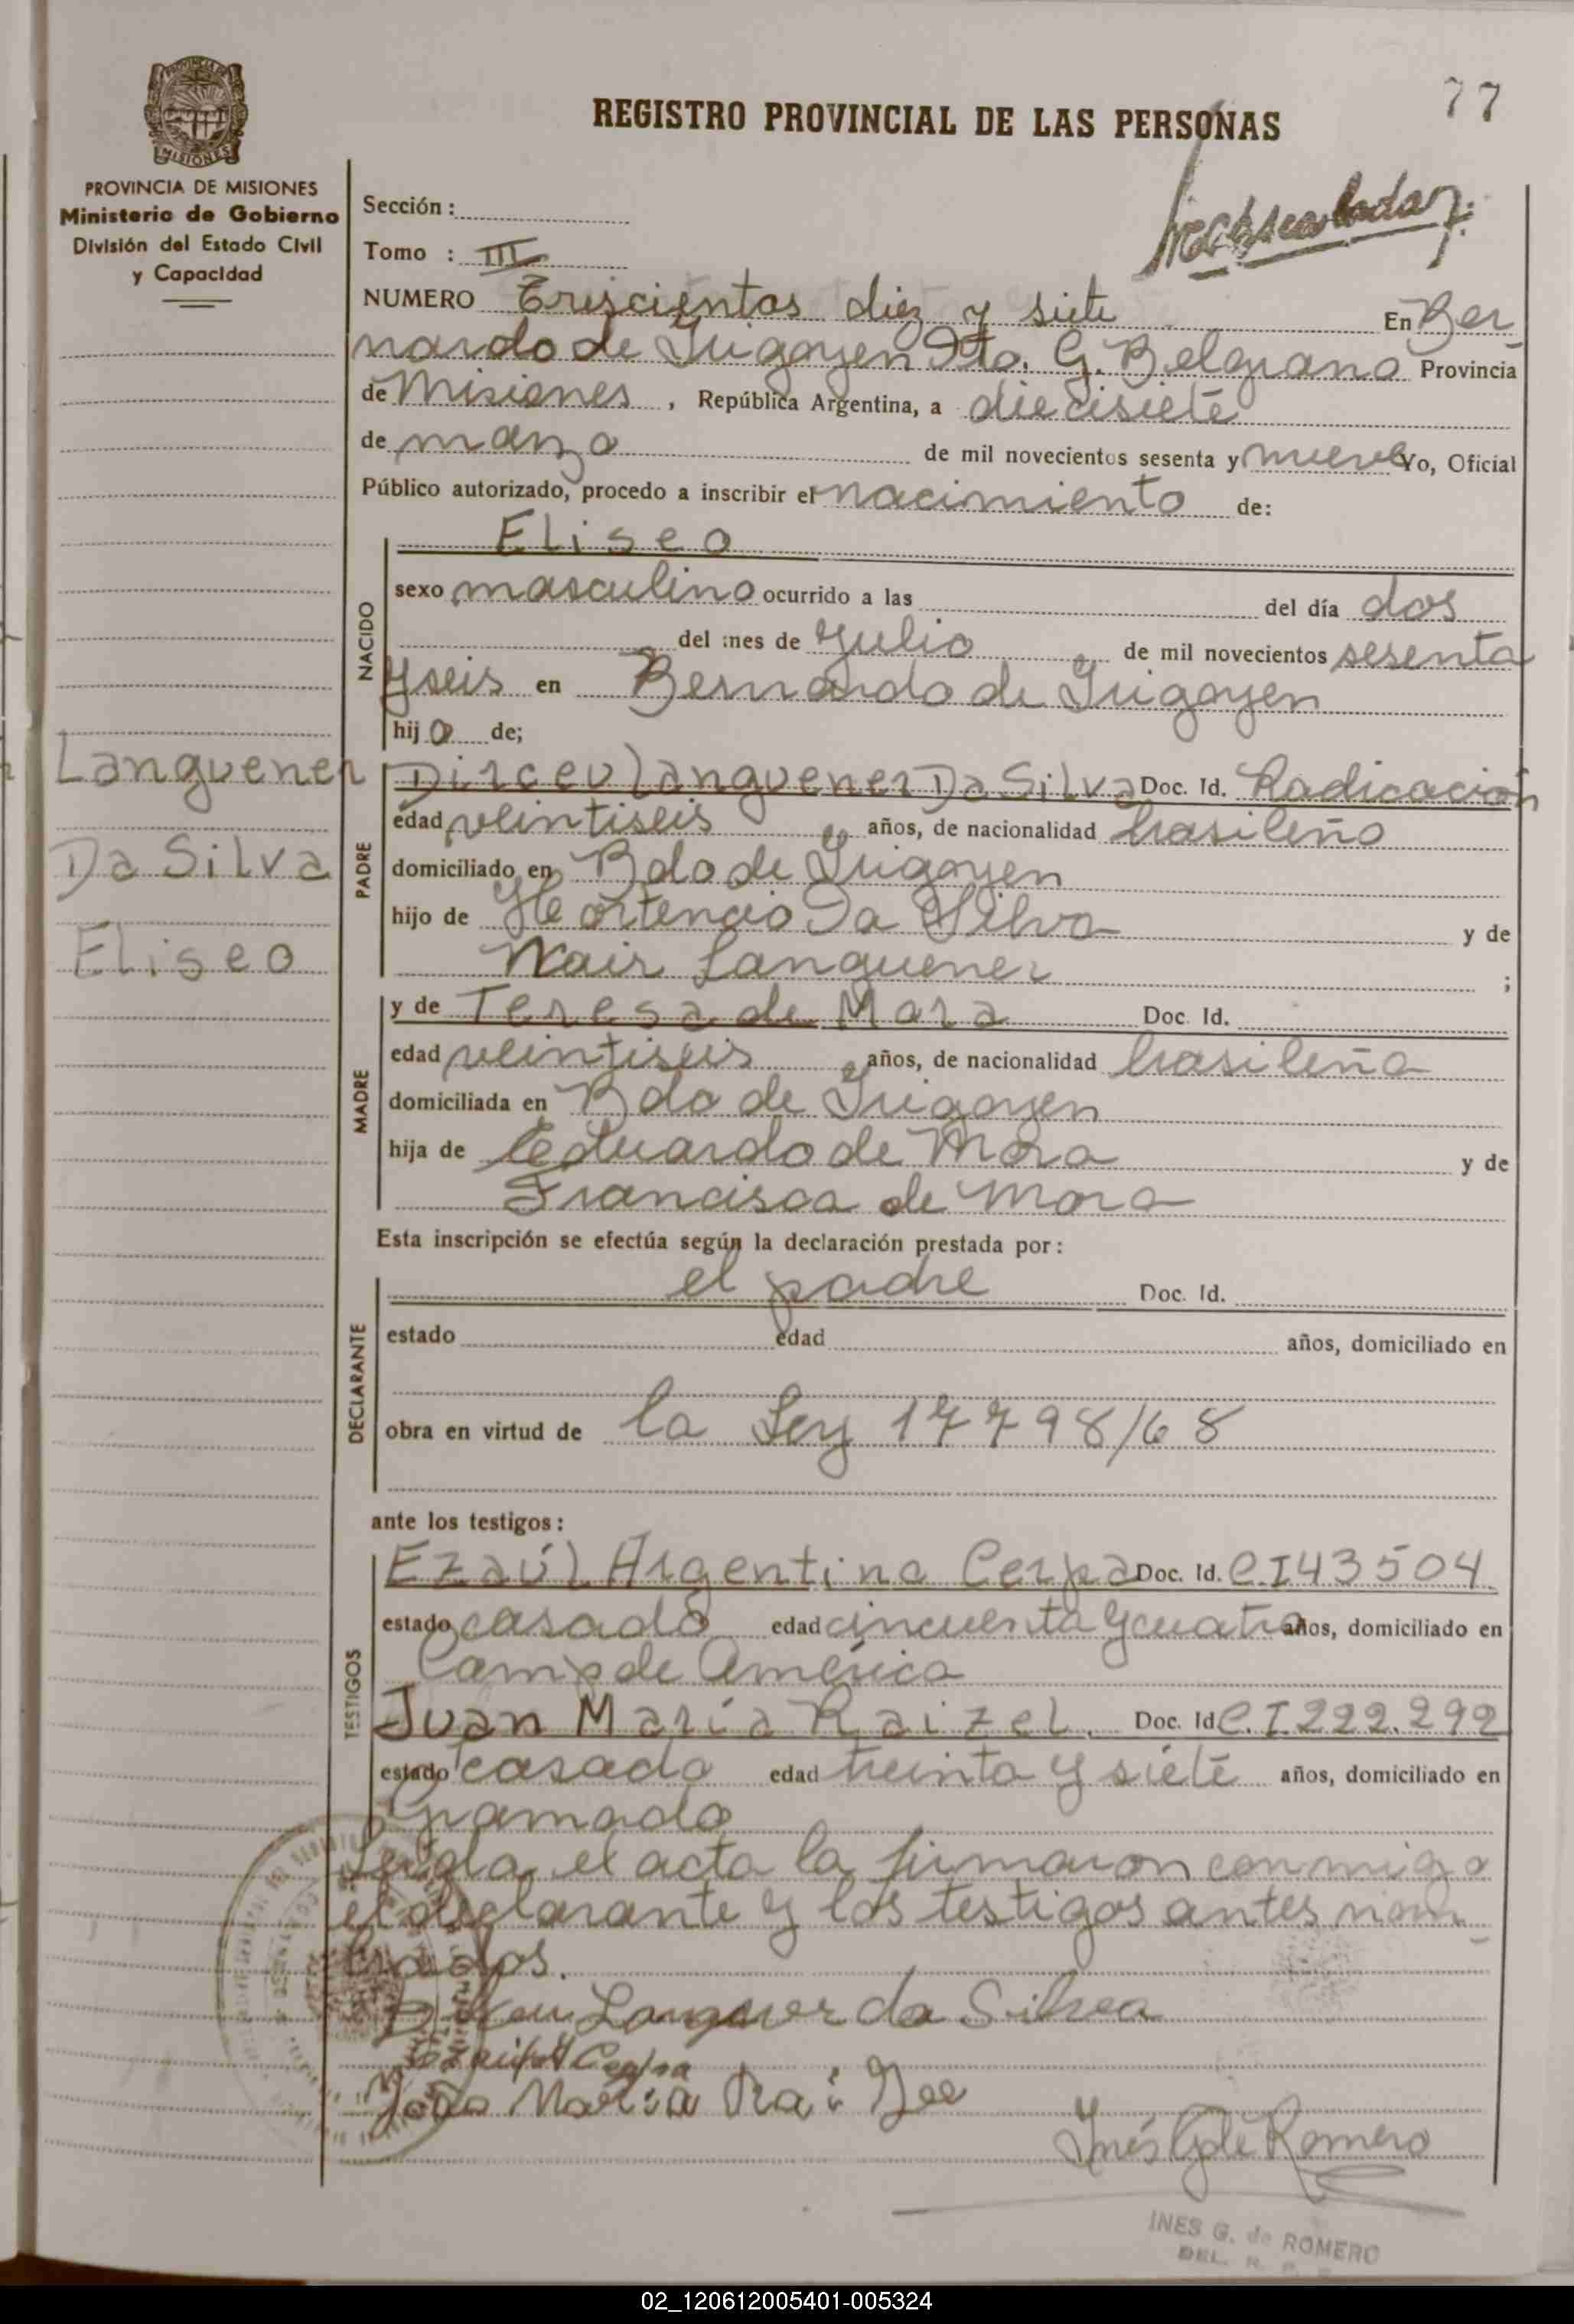 77
REGISTRO PROVINCIAL DE LAS PERSONAS
PROVINCIA DE MISIONES
MISIONES
Ministerio de Gobierno
División del Estado Civil
y Capacidad
Sección :
Tomo : III
NUMERO Trescientos diez y siete En Ber_
nardo de Irigoyen Dto. G. Belgrano Provincia
de Misiones , República Argentina, a diecisiete
de marzo de mil novecientos sesenta y nueve Yo, Oficial
Público autorizado, procedo a inscribir el nacimiento de:
Eliseo
NACIDO
sexo masculino ocurrido a las del día dos
del mes de Julio de mil novecientos sesenta
y seis en Bernardo de Irigoyen
hijo de;
Languener
Da Silva
Eliseo
PADRE
Dirceu Languener Da Silva Doc. Id. Radicación
edad veintiseis años, de nacionalidad brasileño
domiciliado en Bdo de Irigoyen
hijo de Hortencio Da Silva y de
Nair Languener ;
MADRE
y de Teresa de Mara Doc. Id.
edad veintiseis años, de nacionalidad brasileña
domiciliada en Bdo de Irigoyen
hija de Eduardo de Mora y de
Francisca de Mora
Esta inscripción se efectúa según la declaración prestada por:
DECLARANTE
el padre Doc. Id.
estado edad años, domiciliado en
obra en virtud de la Ley 17798/68
ante los testigos:
TESTIGOS
Ezaúl Argentino Cerpa Doc. Id. C.I 43504
estado casado edad cincuenta y cuatro años, domiciliado en
Camp de América
Juan María Raizel. Doc. Id C.I 222.292
estado casado edad treinta y siete años, domiciliado en
Gramado
Leída el acta la firmaron conmigo
el declarante y los testigos antes nom_
brados.
Dirceu Languer da Silva
Cerpa
João Maria
Inés G de Romero
INES G. de ROMERO
DEL. R.
02_120612005401-005324